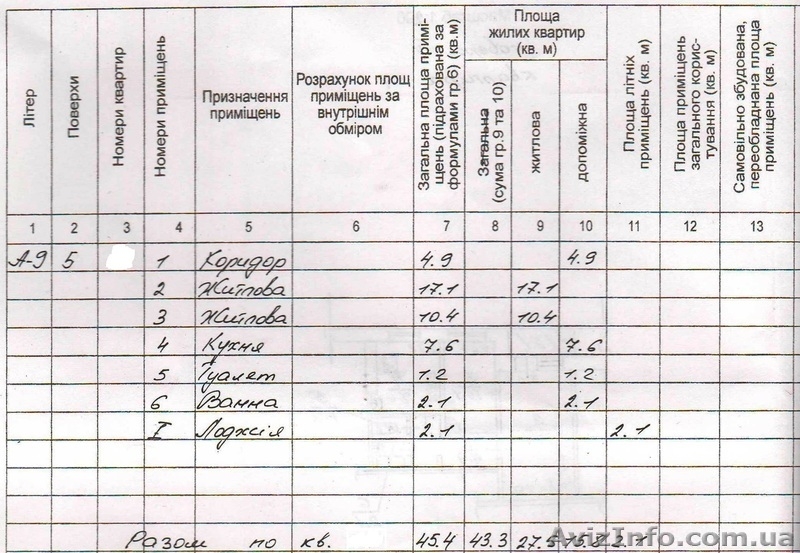 Літер
Поверхи
Номери квартир
Номери приміщень
Призначення приміщень
Розрахунок площ приміщень за внутрішнім обміром
Загальна площа приміщень (підрахована за формулами гр.6) (кв.м)
Площа жилих квартир (кв. м)
Загальна (сума гр.9 та 10)
житлова
допоміжна
Площа літніх приміщень (кв. м)
Площа приміщень загального користування (кв. м)
Самовільно збудована, переобладнана площа приміщень (кв. м)
1 2 3 4 5 6 7 8 9 10 11 12 13
А-9 5 1 Коридор 4.9 4.9
2 Житлова 17.1 17.1
3 Житлова 10.4 10.4
4 Кухня 7.6 7.6
5 Туалет 1.2 1.2
6 Ванна 2.1 2.1
I Лоджія 2.1 2.1
Разом по кв. 45.4 43.3 27.5 15.8 2.1
AvizInfo.com.ua